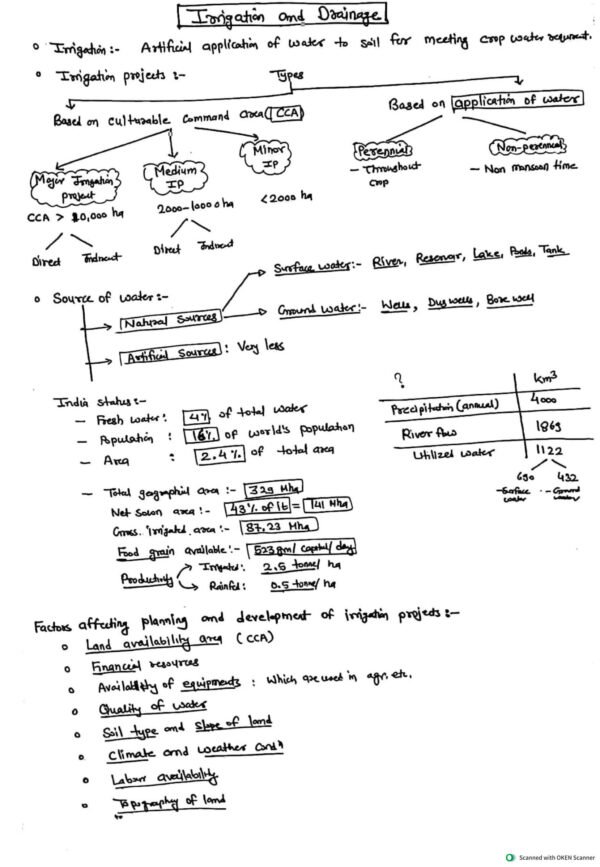 Irrigation and Drainage
Irrigation :- Artificial application of water to soil for meeting crop water
Irrigation projects :- Types
Based on culturable command area (CCA)
Based on application of water
Major Irrigation project
CCA > 10,000 ha
Direct Indirect
Medium IP
2000-10000 ha
Direct Indirect
Minor IP
<2000 ha
Perennial
- Throughout crop
Non-perennial
- Non monsoon time
Source of water :-
Natural Sources
Surface water :- River, Reservoir, Lake, Ponds, Tank
Ground water :- Wells, Dug wells, Bore well
Artificial Sources : Very less
India status :-
- Fresh water : 4% of total water
- Population : 16% of world's population
- Area : 2.4% of total area
? km³
Precipitation (annual) 4000
River flow 1869
Utilized water 1122
690 432
- Surface water - Ground water
- Total geographial area :- 329 Mha
Net sown area :- 43% of it = 141 Mha
Gross irrigated area :- 87.23 Mha
Food grain available :- 523 gm/ capital/ day
Productivity
Irrigated : 2.5 tonne/ ha
Rainfed : 0.5 tonne/ ha
Factors affecting planning and development of irrigation projects :-
Land availability area (CCA)
Financial resources
Availability of equipments : Which are used in agri. etc.
Quality of water
Soil type and slope of land
Climate and weather condn
Labour availability
Topography of land
Scanned with OKEN Scanner